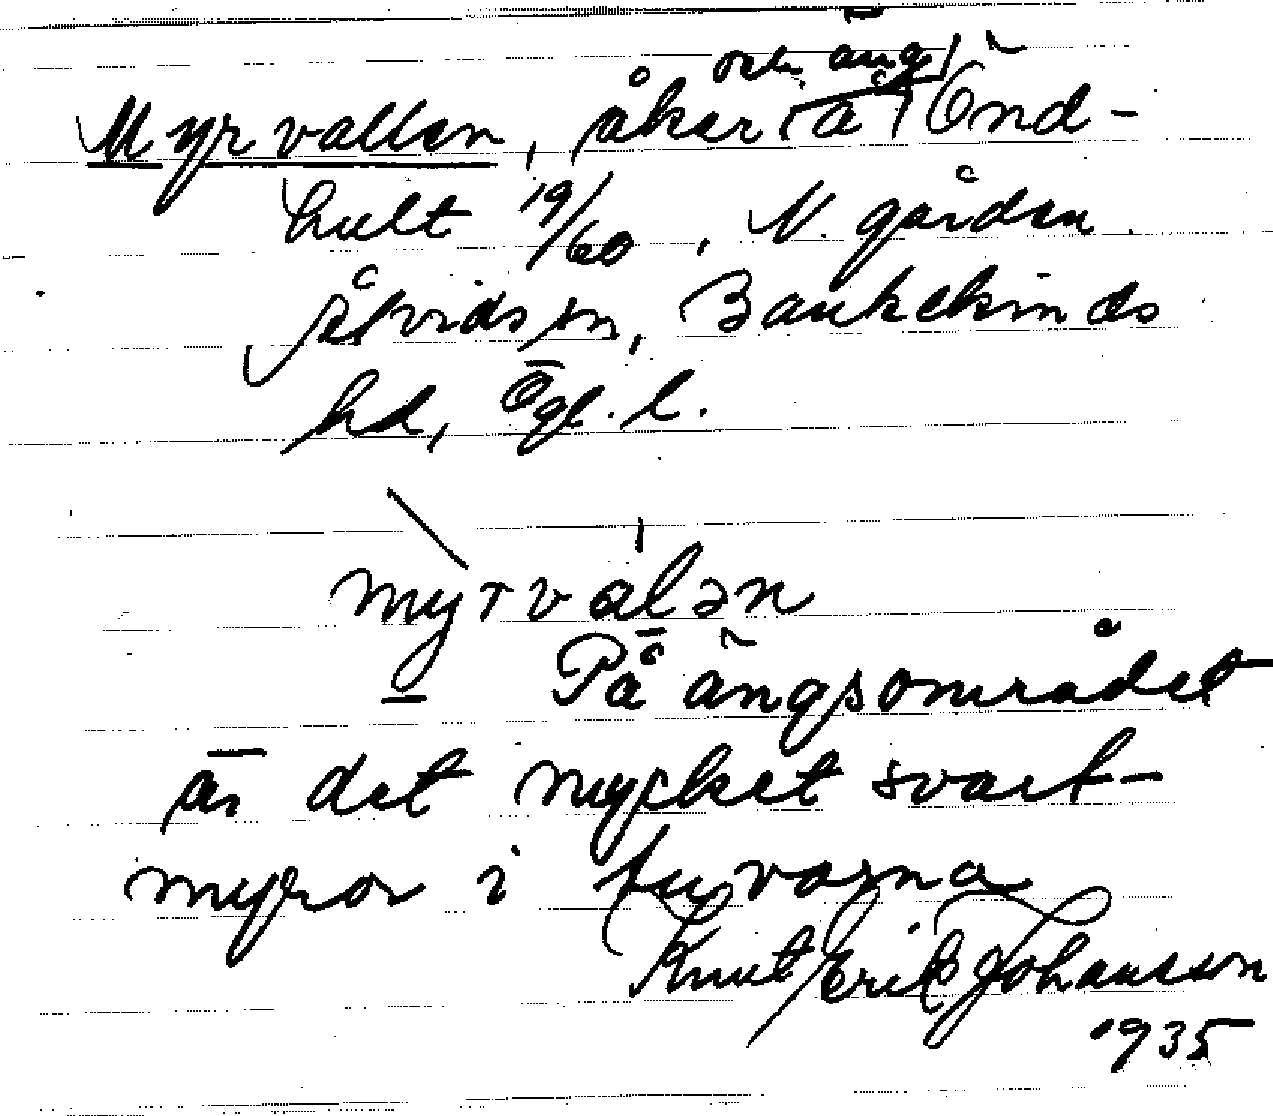 Myrvallen, åker och äng å Önd-
hult 19/60, N. gården
Åtvids sn, Bankekinds
hd, Ögl. l.
myrvalən
På ängsområdet
är det mycket svart-
myror i tuvorna
Knut Erik Johansson
1935